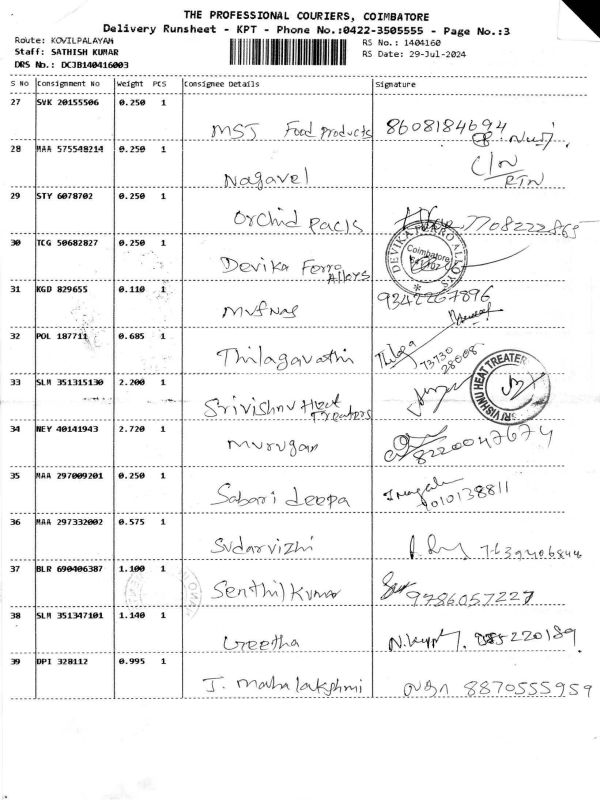 THE PROFESSIONAL COURIERS, COIMBATORE
Delivery Runsheet - KPT - Phone No.:0422-3505555 - Page No.:3
Route: KOVILPALAYAM
RS No.: 1404160
Staff: SATHISH KUMAR
RS Date: 29-Jul-2024
DRS No.: DCJB140416003
S No Consignment No Weight PCS Consignee Details Signature
27 SVK 20155506 0.250 1
MSJ Food products 8608184694
28 MAA 575548214 0.250 1
C/N
Nagavel RTN
29 STY 6078702 0.250 1
Orchid pacls 7708222865
30 TCG 50682827 0.250 1
DEVIKA FERRO ALLOYS
Coimbatore
Devika Ferro
Alloys
31 KGD 829655 0.110 1
9342267896
32 POL 187711 0.685 1
Thilagavathi Thilaga
73730
28008
33 SLM 351315130 2.200 1
SRI VISHNU HEAT TREATER
Srivishnu Heat
Treaters
34 NEY 40141943 2.720 1
Murugan 8220047674
35 MAA 297009201 0.250 1
Sabari deepa
9010138811
36 MAA 297332002 0.575 1
Sudarvizhi
37 BLR 690406387 1.100 1
Senthil Kumar 9786057227
38 SLM 351347101 1.140 1
Geetha
39 DPI 328112 0.995 1
J. Mahalakshmi 8870555959